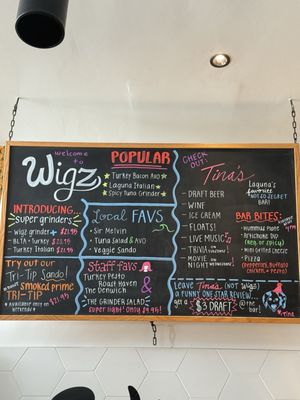 Welcome to
Wigz
INTRODUCING...
super grinders
Wigz grinder + $21.95
BLTA - Turkey $21.95
Turkey Italian $21.95
Try out our
Tri-Tip Sando!
smoked prime
TRI-TIP
$21.95
POPULAR
Turkey Bacon Avo
Laguna Italian
Spicy Tuna Grinder
Local FAVS
Sir Melvin
Tuna Salad & AVO
Veggie Sando
Staff favs
Turkey Pesto
Roast Haven
The Denwich
&
THE GRINDER SALAD
super light! Only $9.95!
CHECK OUT:
Tina's
Laguna's
favorite
NOT SO SECRET
BAR!
- DRAFT BEER
- WINE
- ICE CREAM
- FLOATS!
- LIVE MUSIC
- TRIVIA
- MOVIE
NIGHT
BAR BITES:
- Hummus Plate
- Artichoke Dip
(reg. or spicy)
- Pizza
(Pepperoni, Buffalo
chicken + Pesto)
Leave Tina's (not Wigz)
a funny one star review...
get a $3 DRAFT @ the
bar!